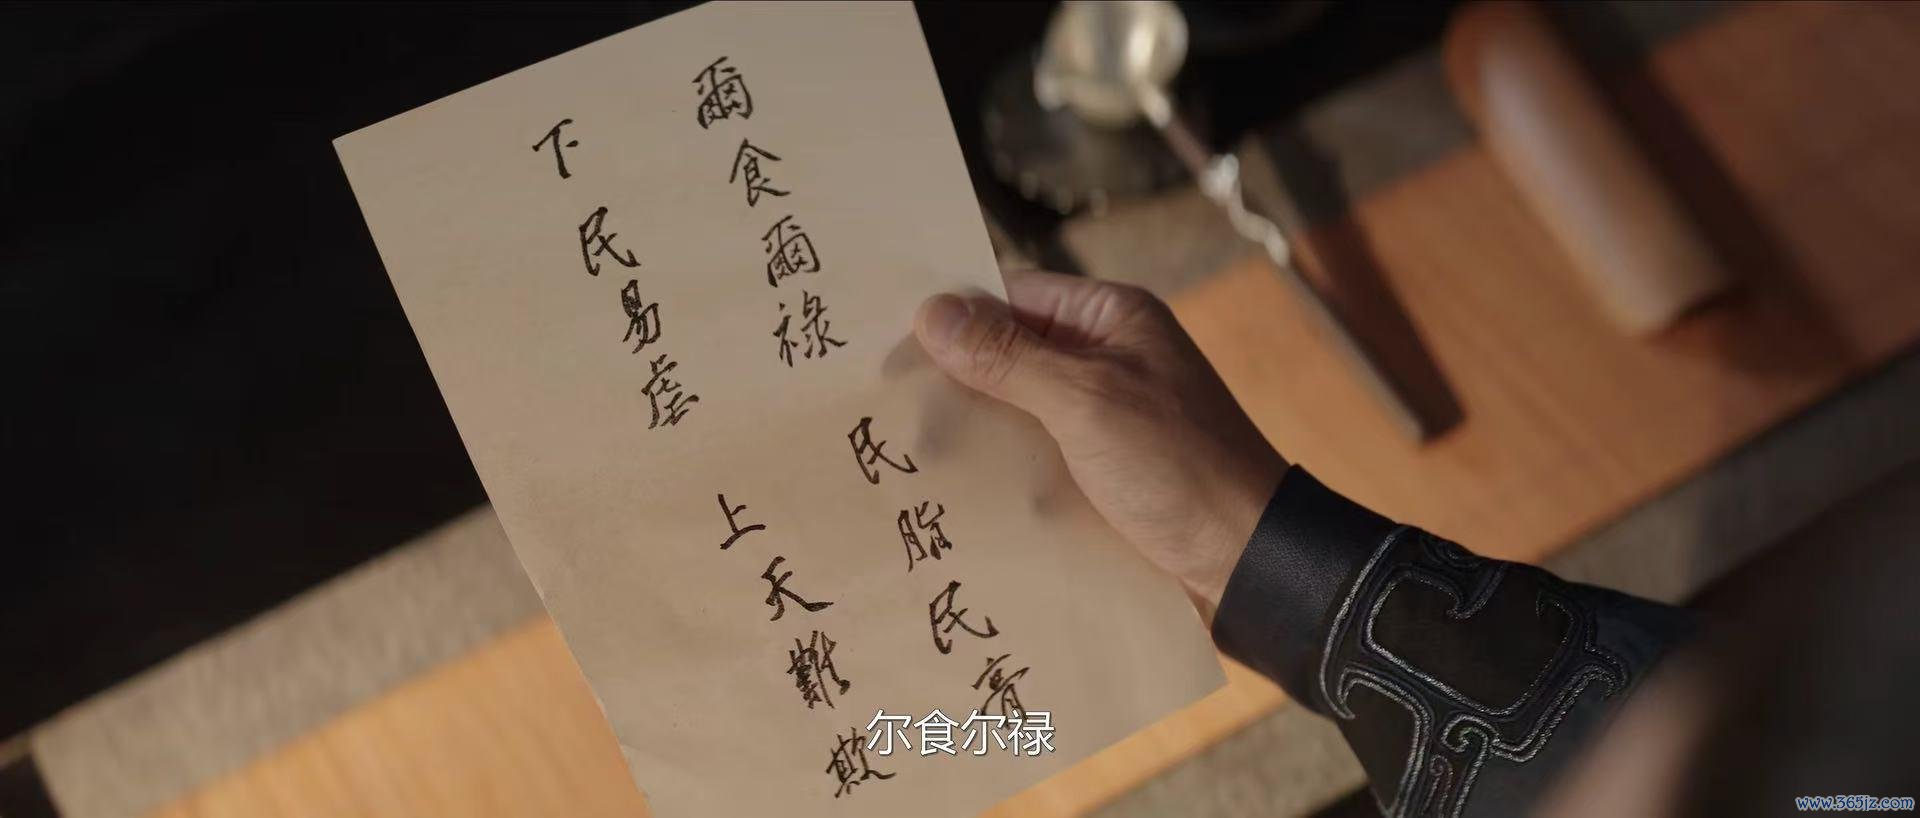 爾食爾祿
民脂民膏
下民易虐
上天難欺
尔食尔禄
www.365jz.com